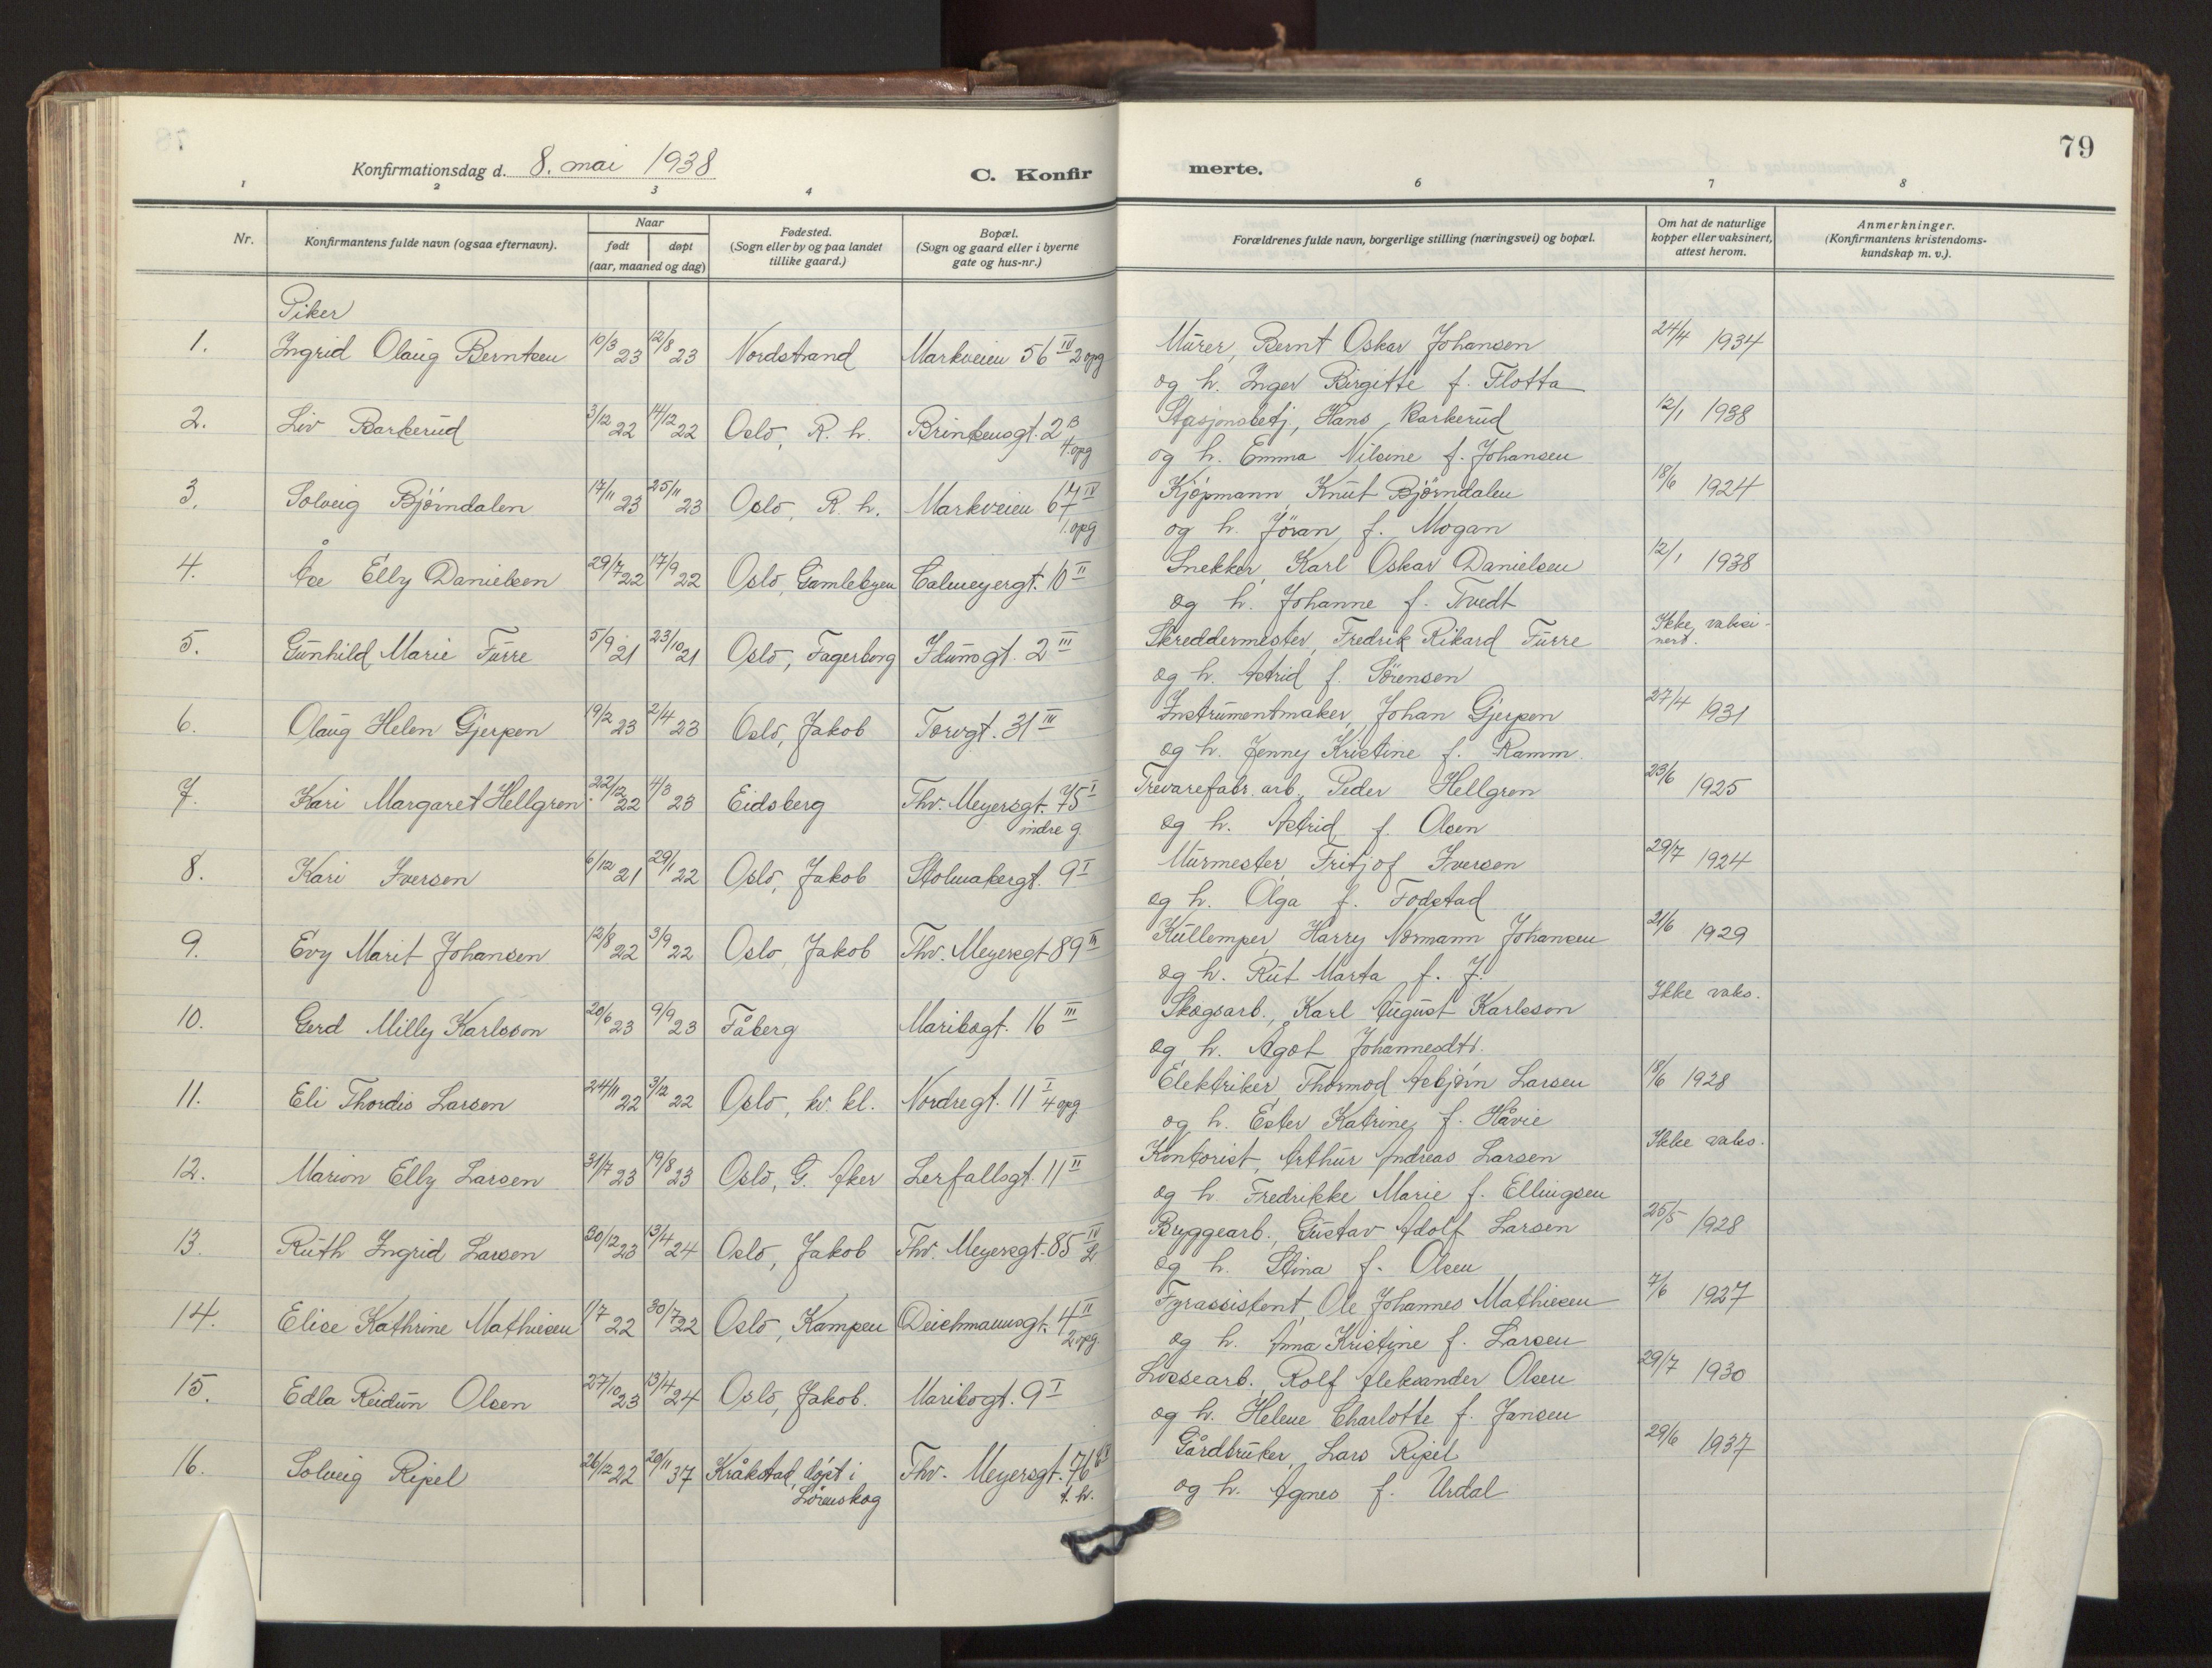 79
Konfirmationsdag d. 8. mai 1938
C. Konfirmerte.
1 2 3 4 6 7 8
Nr.
Konfirmantens fulde navn (ogsaa efternavn).
Naar
født døpt
(aar, maaned og dag)
Fødested.
(Sogn eller by og paa landet
tillike gaard.)
Bopæl.
(Sogn og gaard eller i byerne
gate og hus-nr.)
Forældrenes fulde navn, borgerlige stilling (næringsvei) og bopæl.
Om hat de naturlige
kopper eller vaksinert,
attest herom.
Anmerkninger.
(Konfirmantens kristendoms-
kundskap m. v.).
Piker
1. Ingrid Olaug Berntsen 10/3 23 12/8 23 Nordstrand Markveien 56 IV 2 opg Murer, Bernt Oskar Johansen 24/4 1934
og h. Inger Birgitte f. Flotta
2. Liv Barkerud 3/12 22 14/12 22 Oslo, R. h. Brinkensgt. 2 B Stasjonsbetj., Hans Barkerud 12/1 1938
4. opg og h. Emma Nilsine f. Johansen
3. Solveig Bjørndalen 17/11 23 25/11 23 Oslo, R. h. Markveien 67 IV Kjøpmann, Knut Bjørndalen 18/6 1924
1. opg og h. Jøran f. Mogan
4. Åse Elly Danielsen 29/7 22 17/9 22 Oslo, Gamlebyen Calmeyergt. 10 II Snekker, Karl Oskar Danielsen 12/1 1938
og h. Johanne f. Tvedt
5. Gunhild Marie Furre 5/9 21 23/10 21 Oslo, Fagerborg Idunsgt. 2 III Skreddermester, Fredrik Rikard Furre Ikke vaksi-
nert.
og h. Astrid f. Sörensen
6. Olaug Helen Gjerpen 19/2 23 2/4 23 Oslo, Jakob Torvgt. 31 III Instrumentmaker, Johan Gjerpen 27/4 1931
og h. Jenny Kristine f. Ramm
7. Kari Margaret Hellgren 22/12 22 4/3 23 Eidsberg Thv. Meyersgt. 75 I Trevarefabr. arb., Peder Hellgren 23/6 1925
indre g. og h. Astrid f. Olsen
8. Kari Iversen 6/12 21 29/1 22 Oslo, Jakob Stolmakergt. 9 I Murmester, Fritjof Iversen 29/7 1924
og h. Olga f. Fodstad
9. Evy Marit Johansen 12/8 22 3/9 22 Oslo, Jakob Thv. Meyersgt 89 III Kullemper, Harry Normann Johansen 21/6 1929
og h. Rut Marta f. J.
10. Gerd Milly Karlsson 20/6 23 9/9 23 Fåberg Maribogt. 16 III Skogsarb., Karl August Karlsson Ikke vaks.
og h. Ågot Johannesdtr.
11. Eli Thordis Larsen 24/11 22 3/12 22 Oslo, kv. kl. Nordregt. 11 I 4 opg Elektriker, Thormod Asbjørn Larsen 18/6 1928
og h. Ester Katrine f. Håvie
12. Marion Elly Larsen 31/7 23 19/8 23 Oslo, G. Aker Lerfallsgt. 11 II Kontorist, Arthur Andreas Larsen Ikke vaks.
og h. Fredrikke Marie f. Ellingsen
13. Ruth Ingrid Larsen 30/12 23 13/4 24 Oslo, Jakob Thv. Meyersgt. 85 IV Bryggearb., Gustav Adolf Larsen 25/5 1928
og h. Stina f. Olsen
14. Elise Kathrine Mathiesen 1/7 22 30/7 22 Oslo, Kampen Deichmannsgt. 4 II Fyrassistent, Ole Johannes Mathiesen 7/6 1927
2 opg. og h. Anna Kristine f. Larsen
15. Edla Reidun Olsen 27/10 23 13/4 24 Oslo, Jakob. Maribogt. 9 I Lossearb. Rolf Aleksander Olsen 29/7 1930
og h. Helene Charlotte f. Jansen
16. Solveig Ripel 26/12 22 20/11 37 Kråkstad, döpt i Thv. Meyersgt. 76 Gårdbruker, Lars Ripel 29/6 1937
Lörenskog t. h. og h. Agnes f. Urdal